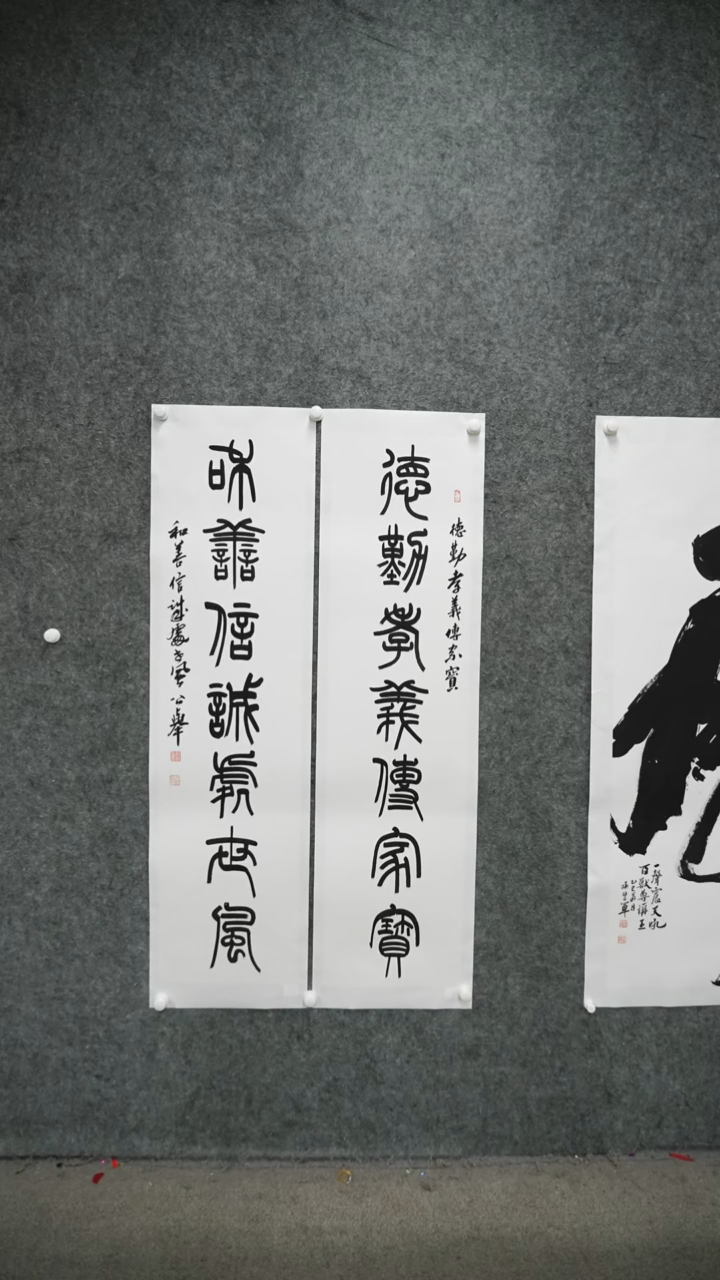 德勤孝義傳家寶
德勤孝義傳家寶
和善信誠處世風
和善信誠處世風 公舉
一聲震天吼
百獸尊稱王